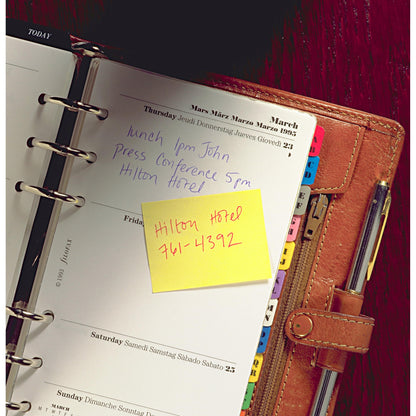 TODAY
March
Mars März Marzo Marzo 1995
Thursday Jeudi Donnerstag Jueves Giovedi 23
lunch 1pm John
Press Conference 5pm
Hilton Hotel
Friday
Hilton Hotel
761-4392
© 1993 FILOFAX
Saturday Samedi Samstag Sàbado Sabato 25
Sunday Dimanche Sonntag
MARCH
M T W T F